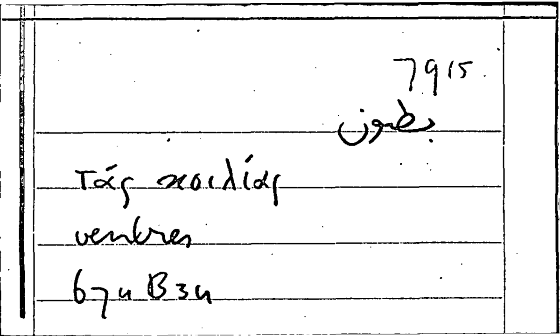 7915
بطون
τάς κοιλίας
ventres
67u B3u